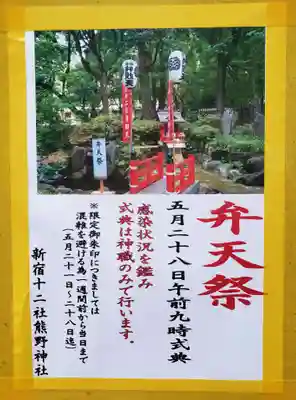 弁天祭
五月二十八日午前九時式典
感染状況を鑑み
式典は神職のみで行います。
※限定御朱印につきましては
混雑を避ける為、一週間前から当日まで
(五月二十一日~二十八日迄)
新宿十二社熊野神社
弁天祭